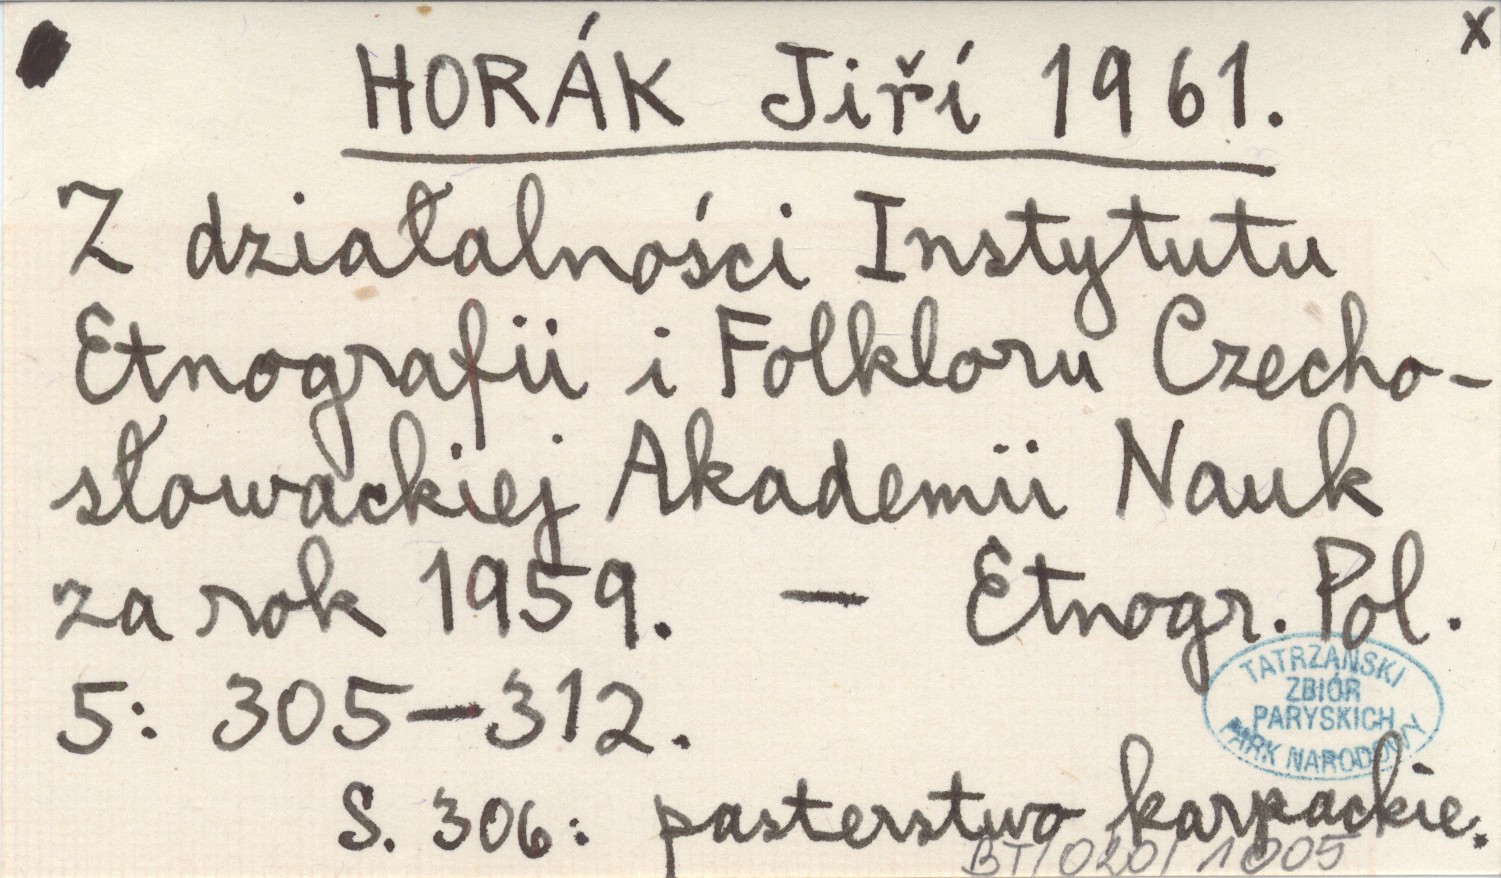 x
HORÁK Jiří 1961.
Z działalności Instytutu
Etnografii i Folkloru Czecho-
słowackiej Akademii Nauk
za rok 1959. — Etnogr. Pol.
5: 305—312.
TATRZAŃSKI
ZBIÓR
PARYSKICH
PARK NARODOWY
S. 306: pasterstwo karpackie.
BT/020/1005